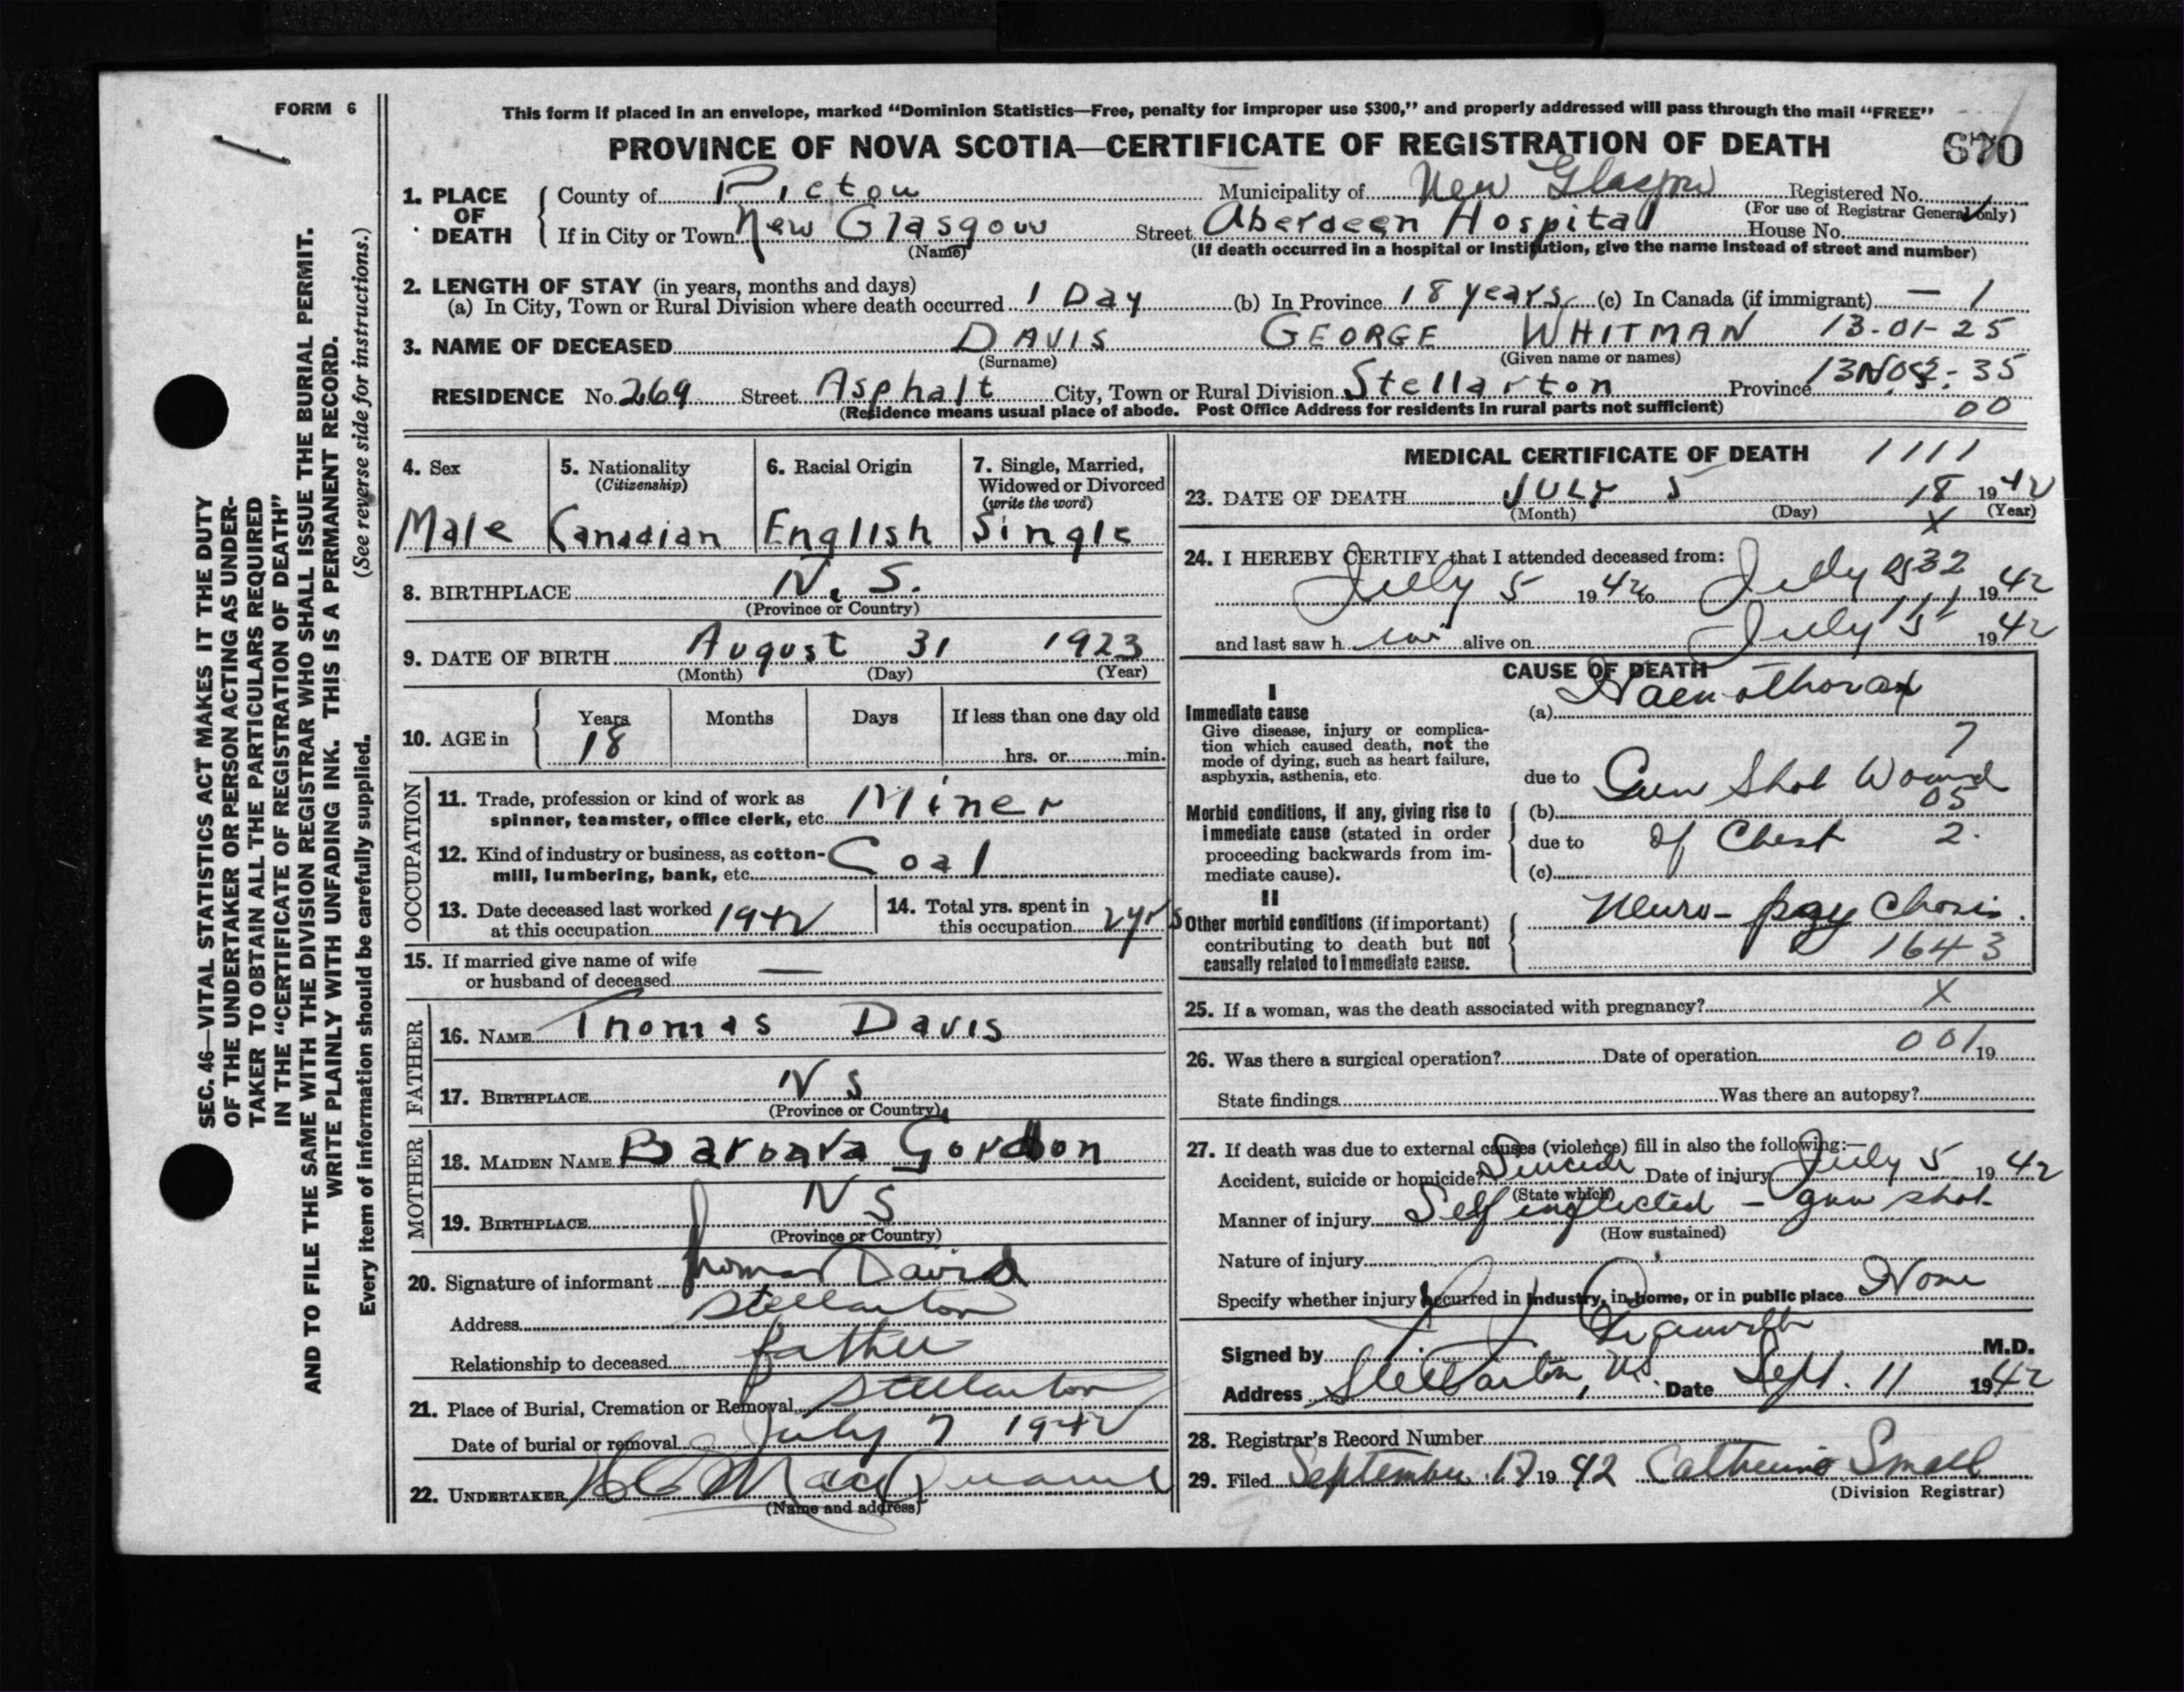 FORM 6
This form if placed in an envelope, marked "Dominion Statistics—Free, penalty for improper use $300," and properly addressed will pass through the mail "FREE"
PROVINCE OF NOVA SCOTIA—CERTIFICATE OF REGISTRATION OF DEATH 670
SEC. 46—VITAL STATISTICS ACT MAKES IT THE DUTY
OF THE UNDERTAKER OR PERSON ACTING AS UNDER-
TAKER TO OBTAIN ALL THE PARTICULARS REQUIRED
IN THE "CERTIFICATE OF REGISTRATION OF DEATH"
AND TO FILE THE SAME WITH THE DIVISION REGISTRAR WHO SHALL ISSUE THE BURIAL PERMIT.
WRITE PLAINLY WITH UNFADING INK. THIS IS A PERMANENT RECORD.
Every item of information should be carefully supplied. (See reverse side for instructions.)
1. PLACE OF DEATH
County of Pictou Municipality of New Glasgow Registered No.
(For use of Registrar General only)
If in City or Town New Glasgow Street Aberdeen Hospital House No.
(Name) (If death occurred in a hospital or institution, give the name instead of street and number)
2. LENGTH OF STAY (in years, months and days)
(a) In City, Town or Rural Division where death occurred 1 Day (b) In Province 18 years (c) In Canada (if immigrant) — 1
3. NAME OF DECEASED DAVIS GEORGE WHITMAN 13-01-25
(Surname) (Given name or names)
RESIDENCE No. 269 Street Asphalt City, Town or Rural Division Stellarton Province 13 35
(Residence means usual place of abode. Post Office Address for residents in rural parts not sufficient) 00
4. Sex
Male
5. Nationality
(Citizenship)
Canadian
6. Racial Origin
English
7. Single, Married,
Widowed or Divorced
(write the word)
Single
8. BIRTHPLACE N. S.
(Province or Country)
9. DATE OF BIRTH August 31 1923
(Month) (Day) (Year)
10. AGE in Years Months Days If less than one day old
18 hrs. or min.
OCCUPATION
11. Trade, profession or kind of work as
spinner, teamster, office clerk, etc. Miner
12. Kind of industry or business, as cotton-
mill, lumbering, bank, etc. Coal
13. Date deceased last worked
at this occupation 1942
14. Total yrs. spent in
this occupation 2 yrs
15. If married give name of wife
or husband of deceased —
FATHER
16. NAME Thomas Davis
17. BIRTHPLACE N S
(Province or Country)
MOTHER
18. MAIDEN NAME Barbara Gordon
19. BIRTHPLACE N S
(Province or Country)
20. Signature of informant Thomas David
Address Stellarton
Relationship to deceased father
21. Place of Burial, Cremation or Removal Stellarton
Date of burial or removal July 7 1942
22. UNDERTAKER
(Name and address)
MEDICAL CERTIFICATE OF DEATH 1111
23. DATE OF DEATH July 5 18 1942
(Month) (Day) (Year)
X
24. I HEREBY CERTIFY that I attended deceased from:
July 5 1942 to July 1942
and last saw h im alive on July 5 1942
CAUSE OF DEATH
I
Immediate cause
Give disease, injury or complica-
tion which caused death, not the
mode of dying, such as heart failure,
asphyxia, asthenia, etc.
(a) Haemothorax
7
due to Gun Shot Wound
Morbid conditions, if any, giving rise to
immediate cause (stated in order
proceeding backwards from im-
mediate cause).
(b) 05
due to of Chest 2.
(c)
II
Other morbid conditions (if important)
contributing to death but not
causally related to immediate cause.
Neuro-psychosis.
164-3
25. If a woman, was the death associated with pregnancy? X
26. Was there a surgical operation? Date of operation 001 19
State findings Was there an autopsy?
27. If death was due to external causes (violence) fill in also the following:—
Accident, suicide or homicide? Suicide Date of injury July 5 1942
(State which)
Manner of injury Self inflicted - gun shot
(How sustained)
Nature of injury
Specify whether injury occurred in industry, in home, or in public place Home
Signed by M.D.
Address Stellarton, N.S. Date Sept. 11 1942
28. Registrar's Record Number
29. Filed September 17 1942 Catherine Small
(Division Registrar)